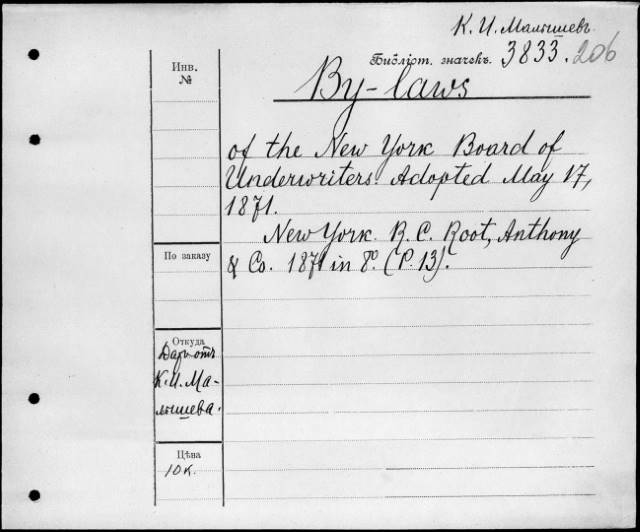 К. И. Малышевъ.
Библіот. значекъ. 3833. 206
Инв.
№
By-laws
of the New York Board of
Underwriters. Adopted May 17,
1871.
New York. R. C. Root, Anthony
& Co. 1871 in 8º. (P. 13).
По заказу
Откуда
Даръ отъ
К. И. Ма-
лышева.
Цѣна
10 к.